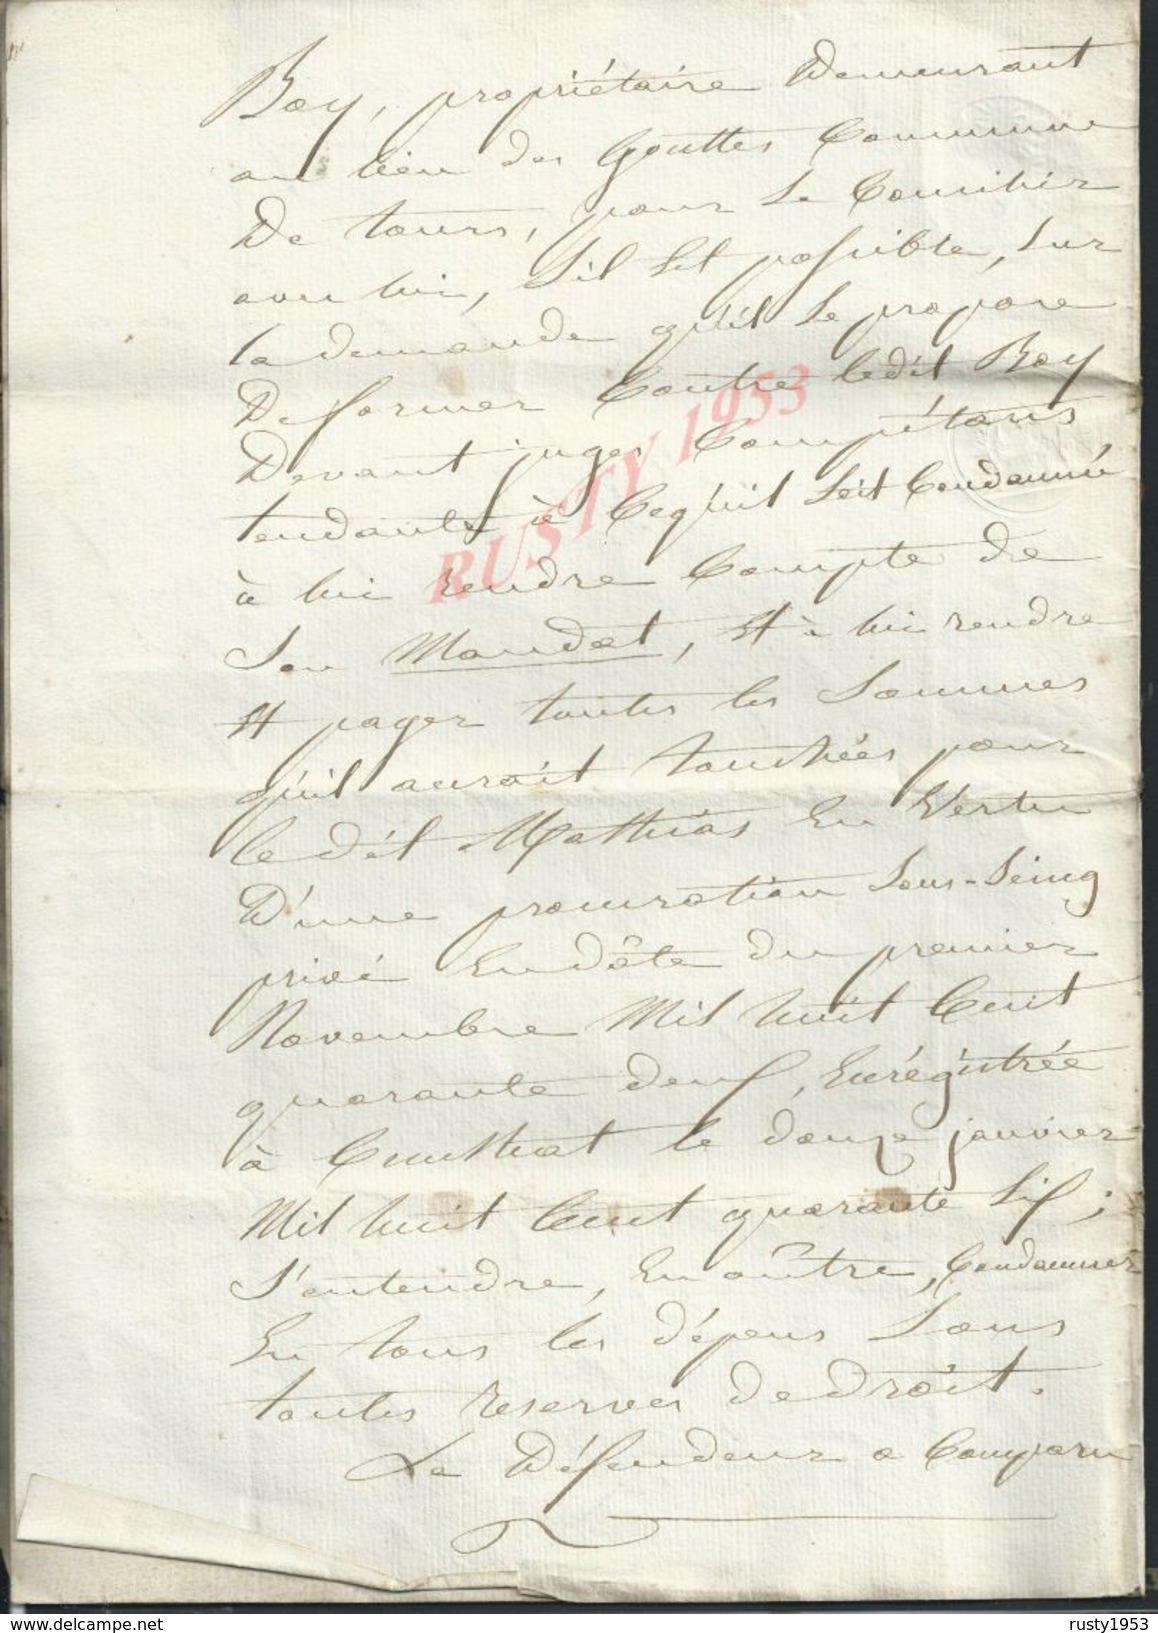 Boy, propriétaire Demeurant
au lieu des Gouttes Commune
De tours, pour se Concilier
avec lui, S'il Est possible, Sur
la demande qu'il se propose
De former Contre ledit Boy
Devant juges Compétans,
tendante à Cequ'il soit Condamné
à lui rendre Compte de
Son Mandat, Et à lui rendre
Et payer toutes les Sommes
qu'il aurait touchées pour
le dit Mathias En Vertu
D'une procuration Sous-Seing
privé En dâte du premier
Novembre Mil huit Cent
quarante deux, Enrégistrée
à le douze janvier
Mil huit Cent quarante Six;
S'entendre, En oûtre, Condamner
En tous les dépens Sous
toutes reserves de droit.
Le Défendeur a Comparu
RUSTY 1953
delcampe.net
rusty1953